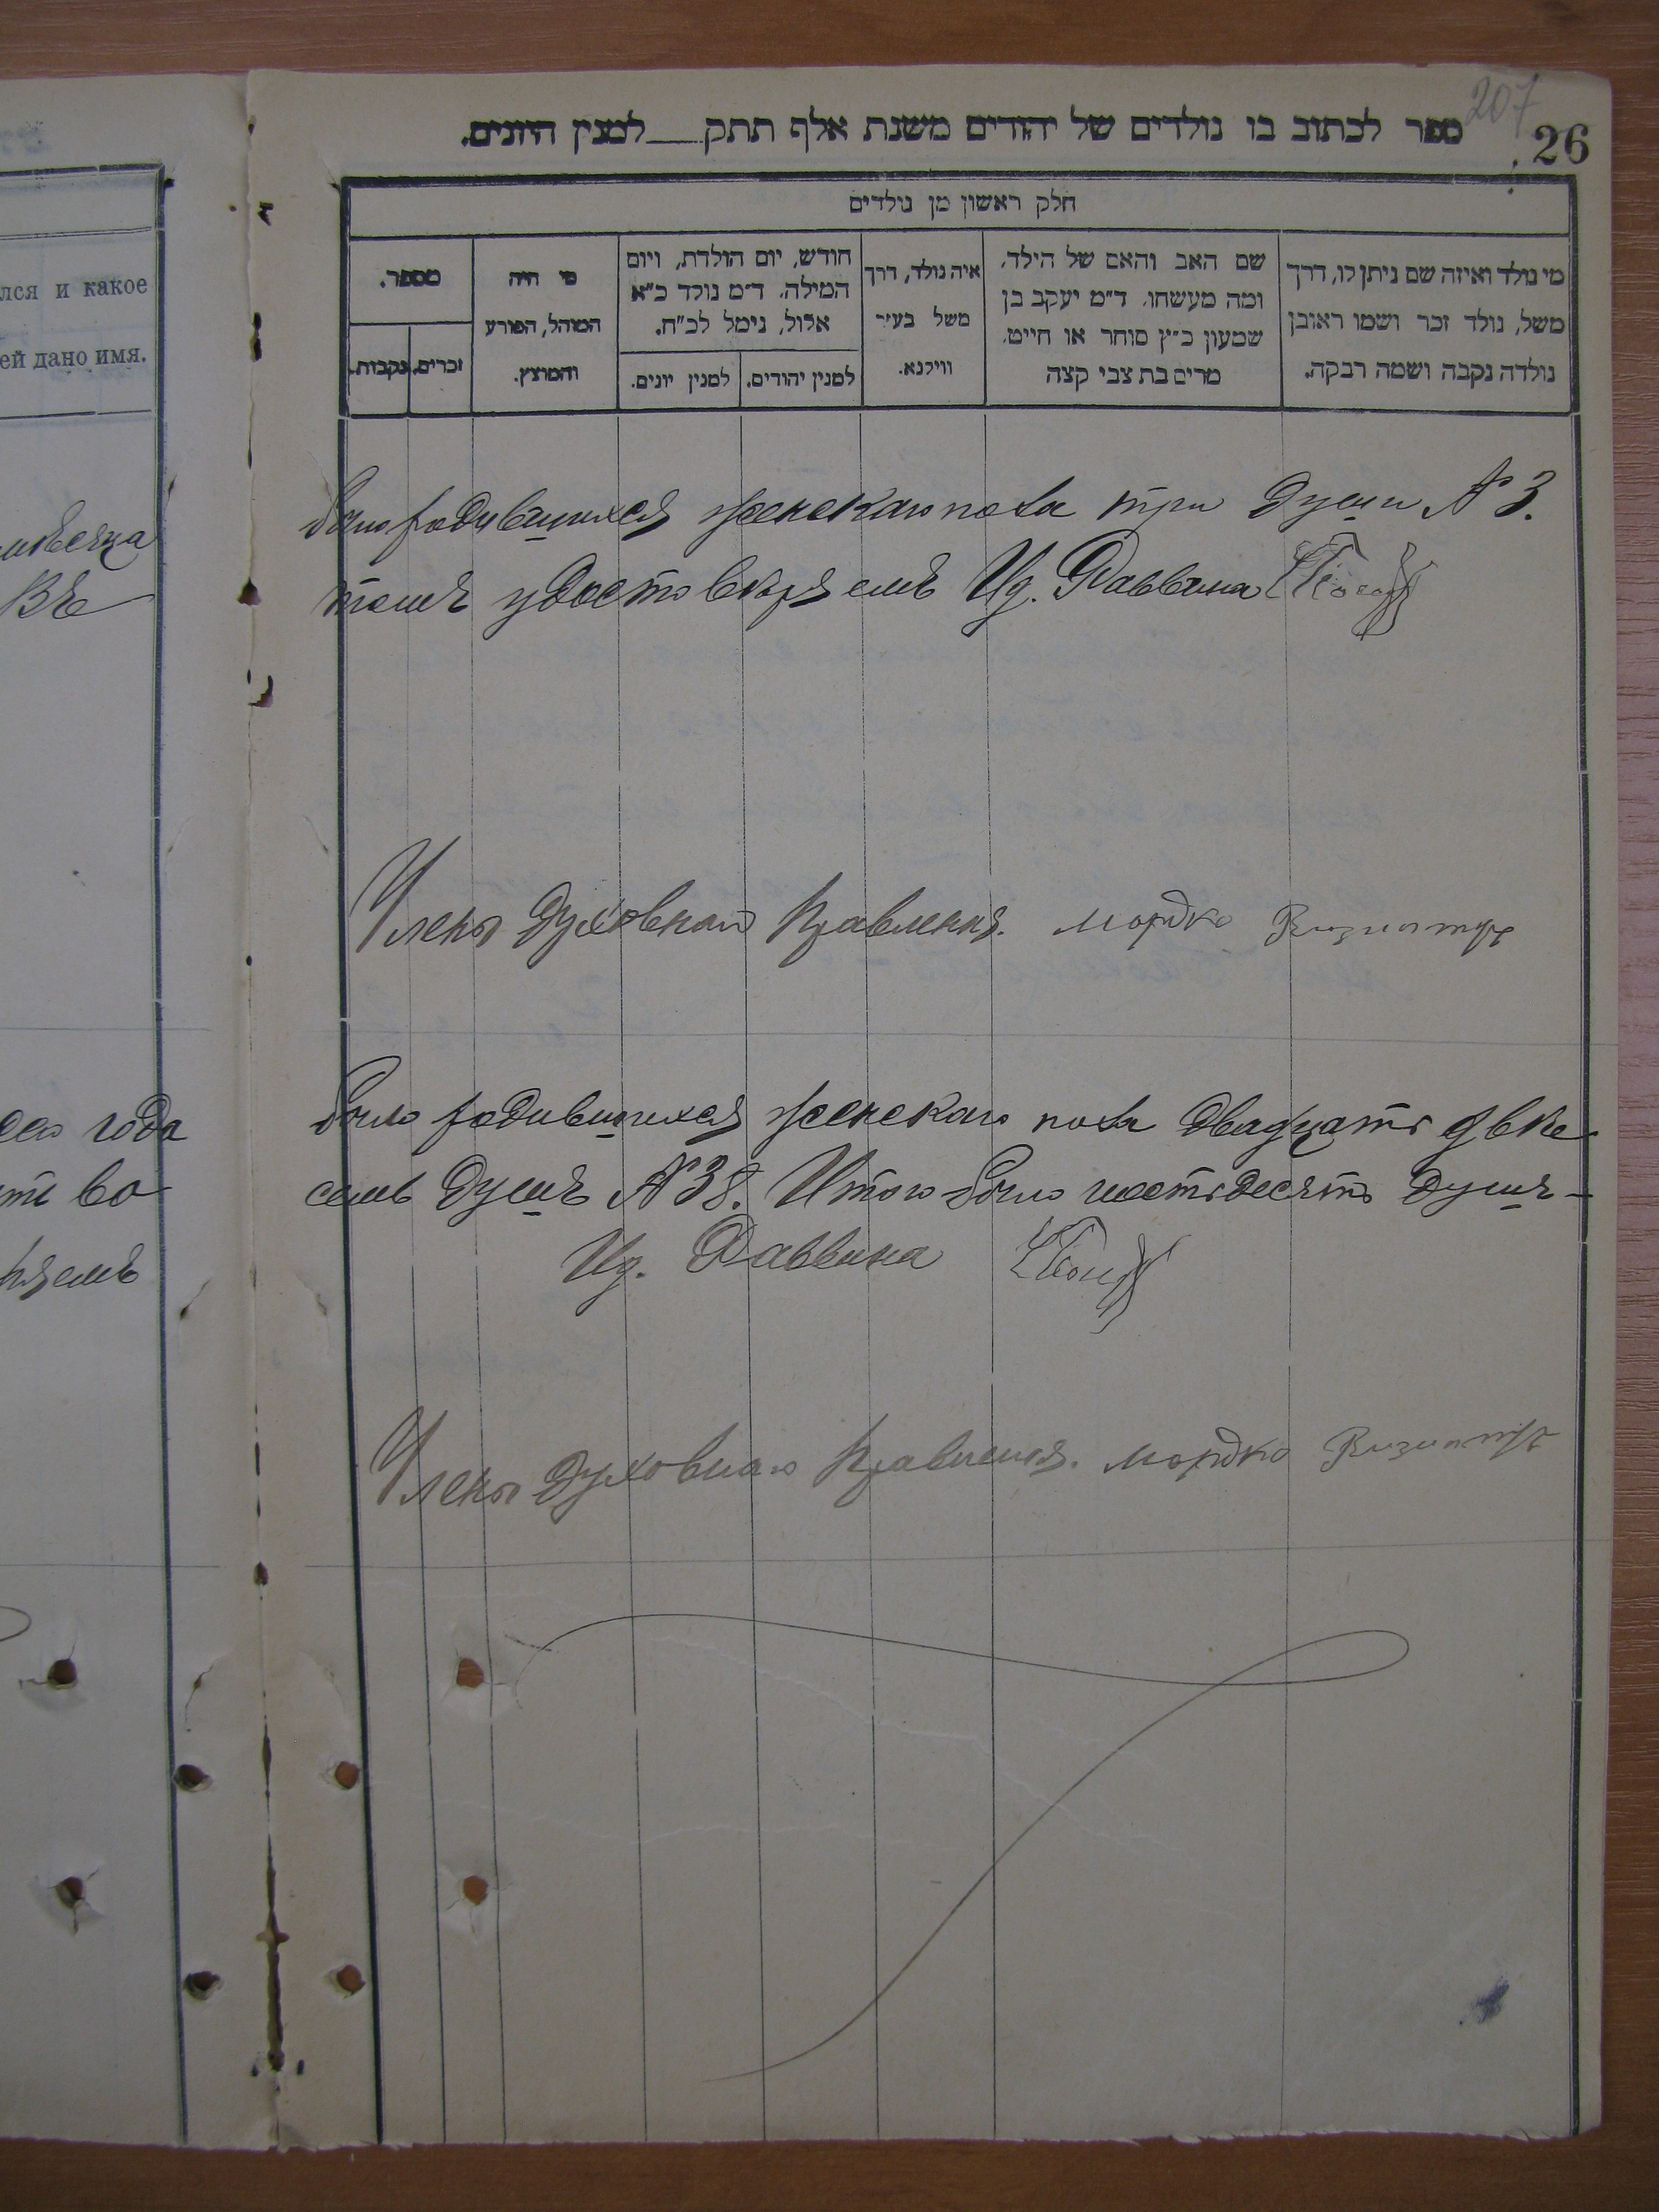 207
26
ספר לכתוב בו נולדים של יהודים משנת אלף תתק___למנין היונים.
חלק ראשון מן נולדים
מי נולד ואיזה שם ניתן לו, דרך
משל, נולד זכר ושמו ראובן
נולדה נקבה ושמה רבקה.
שם האב והאם של הילד,
ומה מעשהו. ד"מ יעקב בן
שמעון כ"ץ סוחר או חייט,
מרים בת צבי קצה
איה נולד, דרך
משל בעיר
ווילנא.
חודש, יום הולדת, ויום
המילה. ד"מ נולד כ"א
אלול, נימל לכ"ח.
למנין יהודים.
למנין יונים.
מי היה
המוהל, הפורע
והמוצץ.
מספר.
זכרים.
נקבות.
лся и какое
ей дано имя.
мѣсяца
Въ
было родившихся женскаго пола три души № 3.
темъ удостовѣряемъ Из. Раввина
Члены Духовнаго Правленія. Мордко
его года
ть во
ряемъ
было родившихся женскаго пола двадцать двѣ
семь душъ № 38. Итого было шестьдесятъ душъ —
Из. Раввина
Члены Духовнаго Правленія. Мордко